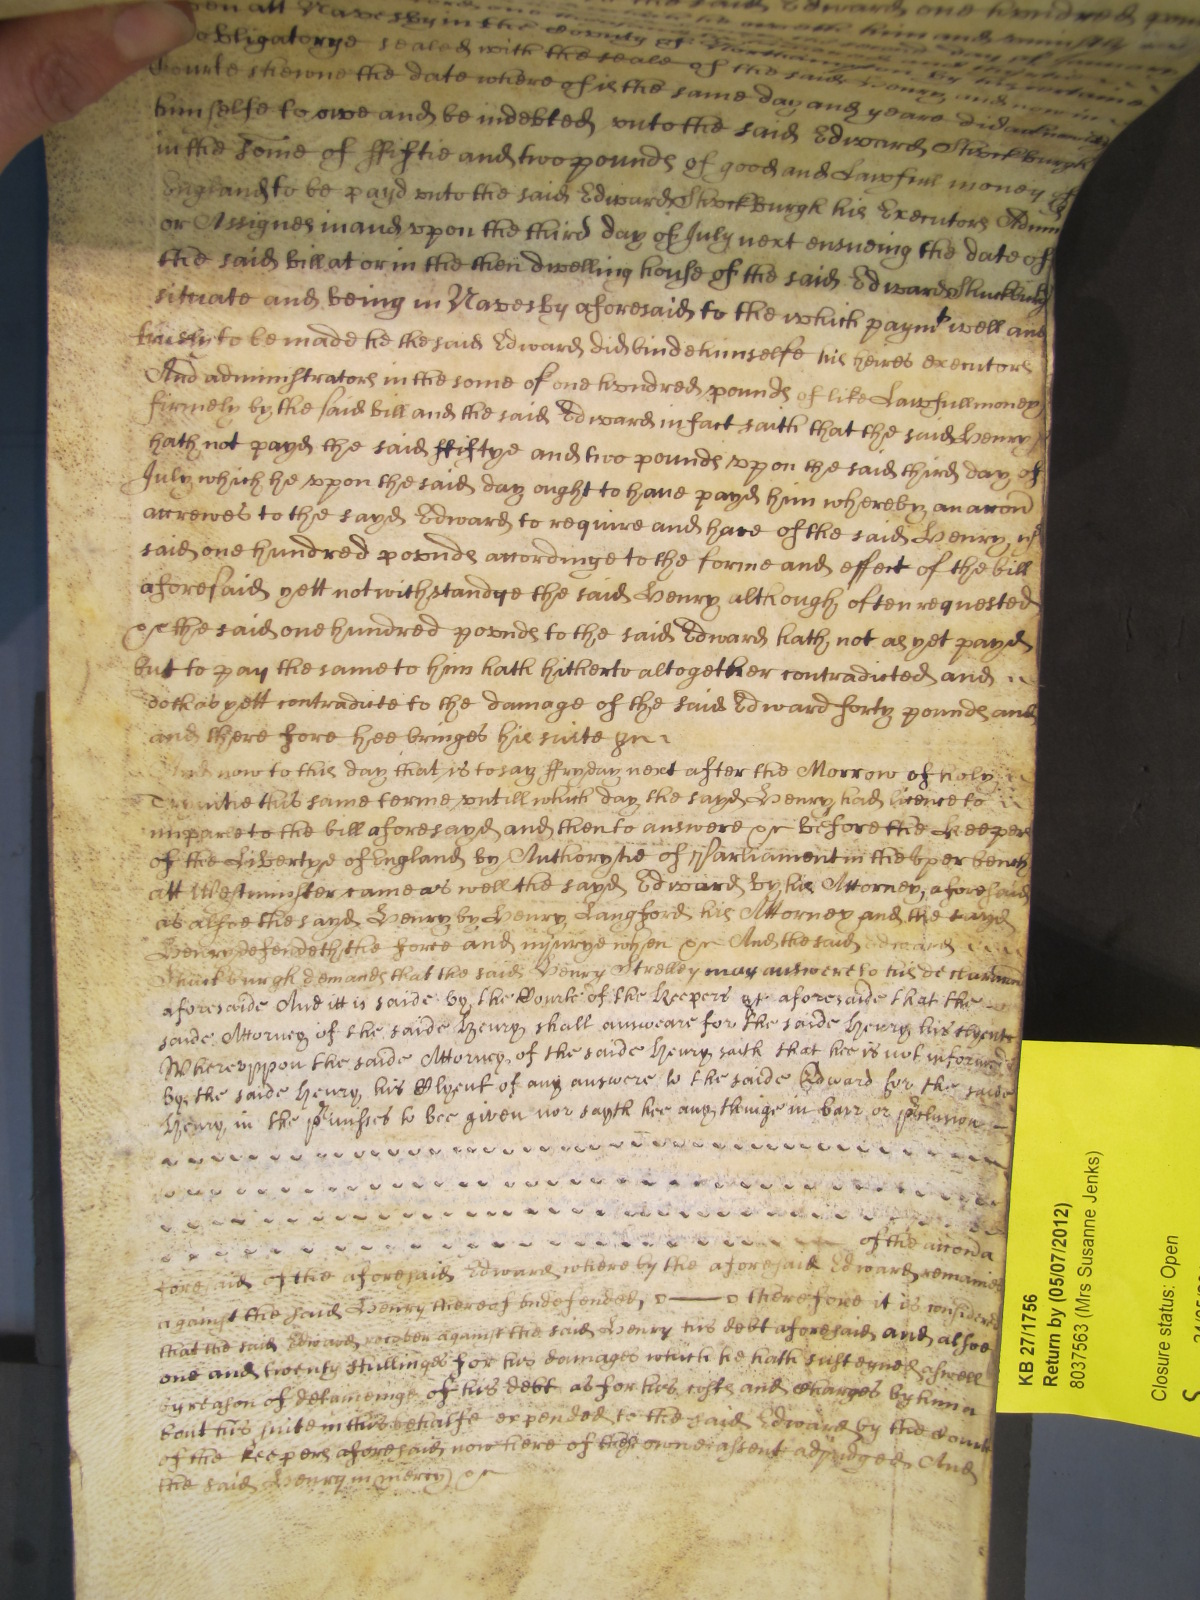 the said Edward one hundred
att Navesby in the County of Northampton by his certaine
obligatorye sealed with the seale of the said Henry and now in
Courte shewne the date where of is the same day and yeare did
himselfe to owe and be indebted unto the said Edward Shuckburgh
in the some of ffiftie and two pounds of good and Lawfull money of
England to be payd unto the said Edward Shuckburgh his Executors
or Assignes in and upon the third day of July next ensueing the date of
the said bill at or in the then dwelling house of the said Edward Shuckburgh
situate and being in Navesby aforesaid to the which paymt well and
to be made he the said Edward did binde himselfe his heires executors
And administrators in the some of one hundred pounds of like Lawfull money
firmely by the said bill and the said Edward in fact saith that the said Henry
hath not payd the said ffiftye and two pounds upon the said third day of
July which he upon the said day ought to have payd him whereby an accon
accrewes to the sayd Edward to require and have of the said Henry
said one hundred pounds accordinge to the forme and effect of the bill
aforesaid yett notwithstandge the said Henry although often requested
&c the said one hundred pounds to the said Edward hath not as yet payd
but to pay the same to him hath hitherto altogether contradicted and
doth as yett contradicte to the damage of the said Edward forty pounds and
and there fore hee bringes his suite &c
And now to this day that is to say ffryday next after the Morrow of holy
Trinitie this same terme untill which day the sayd Henry had licence to
imparle to the bill aforesayd and then to answere &c before the Keepers
of the Libertye of England by Authorytie of Parliament in the uper bench
att Westminster came as well the sayd Edward by his Attorney aforesaid
as alsoe the sayd Henry by Henry Langford his Attorney and the sayd
Henry defendeth the force and injurye when &c And the said Edward
Shuckburgh demands that the said Henry Strelley may answere to his declaration
aforesaide And itt is saide by the Courte of the Keepers &c aforesaide that the
saide Attorney of the saide Henry shall answeare for the saide Henry his clyente
Whereuppon the saide Attorney of the saide Henry saith that hee is not informed
by the saide Henry his Clyent of any answere to the saide Edward for the saide
Henry in the p'misses to bee given nor sayth hee any thinge in barr or
of the accon a
fore said of the aforesaid Edward where by the aforesaid Edward remaines
against the said Henry thereof undefended therefore it is considered
that the said Edward recover against the said Henry his debt aforesaid and alsoe
one and twenty shillinges for his damages which he hath susteyned aswell
by reason of deteineinge of his debt as for his costs and charges by him a
bout his suite in this behalfe expended to the said Edward by the Courte
of the Keepers aforesaid now here of their owne assent adjudged And
the said Henry in mercy &c
KB 27/1756
Return by (05/07/2012)
8037563 (Mrs Susanne Jenks)
Closure status: Open